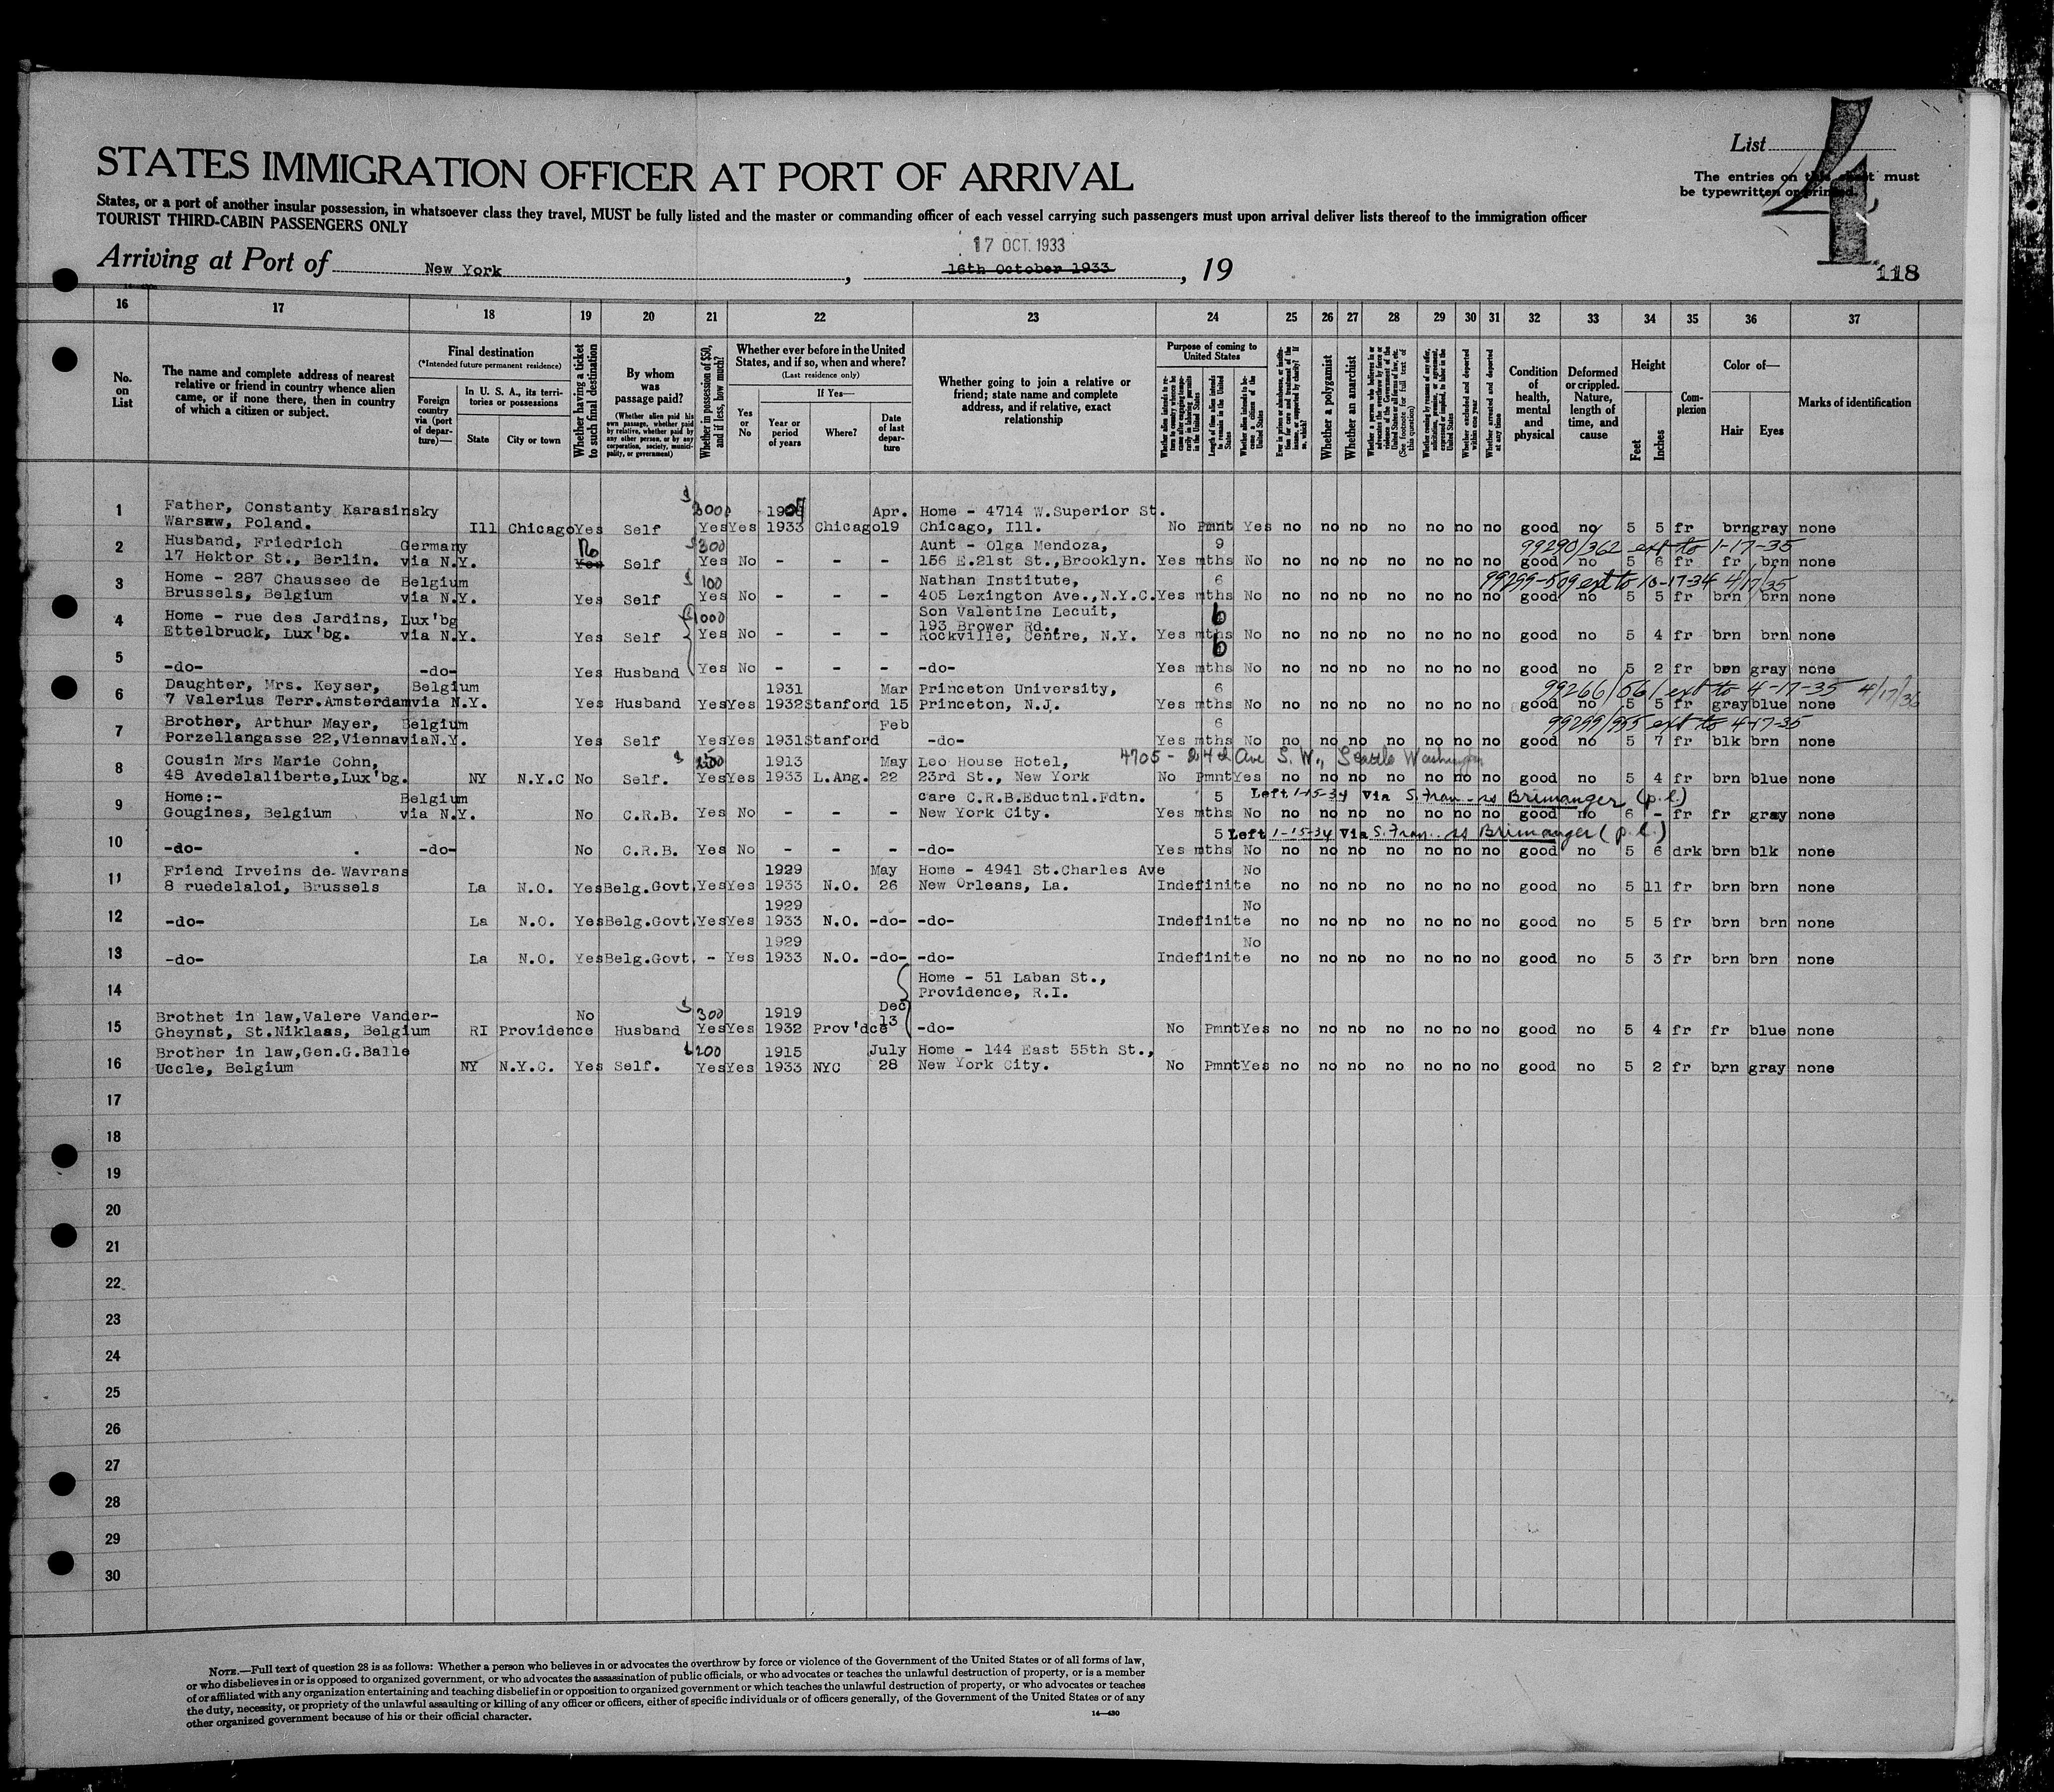 List
4
The entries on this sheet must
be typewritten or printed.
STATES IMMIGRATION OFFICER AT PORT OF ARRIVAL
States, or a port of another insular possession, in whatsoever class they travel, MUST be fully listed and the master or commanding officer of each vessel carrying such passengers must upon arrival deliver lists thereof to the immigration officer
TOURIST THIRD-CABIN PASSENGERS ONLY
17 OCT. 1933
Arriving at Port of New York, 16th October 1933, 19
118
16 17 18 19 20 21 22 23 24 25 26 27 28 29 30 31 32 33 34 35 36 37
No. on List
The name and complete address of nearest relative or friend in country whence alien came, or if none there, then in country of which a citizen or subject.
Final destination
(*Intended future permanent residence)
Foreign country via (port of departure)—
In U. S. A., its territories or possessions
State
City or town
Whether having a ticket to such final destination
By whom was passage paid?
(Whether alien paid his own passage, whether paid by relative, whether paid by any other person, or by any corporation, society, municipality, or government)
Whether in possession of $50, and if less, how much?
Whether ever before in the United States, and if so, when and where?
(Last residence only)
Yes or No
If Yes—
Year or period of years
Where?
Date of last departure
Whether going to join a relative or friend; state name and complete address, and if relative, exact relationship
Purpose of coming to United States
Length of time alien intends to remain in the United States
Whether alien intends to become a citizen of the United States
Whether a polygamist
Whether an anarchist
Whether excluded and deported within one year
Whether arrested and deported at any time
Condition of health, mental and physical
Deformed or crippled. Nature, length of time, and cause
Height
Feet
Inches
Complexion
Color of—
Hair
Eyes
Marks of identification
1 Father, Constanty Karasinsky $3000 Apr. Home - 4714 W.Superior St.
Warsaw, Poland. Ill Chicago Yes Self Yes Yes 1933 Chicago 19 Chicago, Ill. No Pmnt Yes no no no no no no no good no 5 5 fr brn gray none
2 Husband, Friedrich Germany No $300 Aunt - Olga Mendoza, 9 99290/362 ext to 1-17-35
17 Hektor St., Berlin. via N.Y. Yes Self Yes No - - - 156 E.21st St., Brooklyn. Yes mths No no no no no no no no good no 5 6 fr fr brn none
3 Home - 287 Chaussee de Belgium $100 Nathan Institute, 6 99299-509 ext to 10-17-34 4/17/35
Brussels, Belgium via N.Y. Yes Self Yes No - - - 405 Lexington Ave., N.Y.C. Yes mths No no no no no no no no good no 5 5 fr brn brn none
4 Home - rue des Jardins, Lux'bg $1000 Son Valentine Lecuit, 6
193 Brower Rd.,
Ettelbruck, Lux'bg. via N.Y. Yes Self Yes No - - - Rockville, Centre, N.Y. Yes mths No no no no no no no no good no 5 4 fr brn brn none
5 6
-do- -do- Yes Husband Yes No - - - -do- Yes mths No no no no no no no no good no 5 2 fr brn gray none
6 Daughter, Mrs. Keyser, Belgium 1931 Mar Princeton University, 6 99266/061 ext to 4-17-35 4/17/36
7 Valerius Terr.Amsterdam via N.Y. Yes Husband Yes Yes 1932 Stanford 15 Princeton, N.J. Yes mths No no no no no no no no good no 5 5 fr gray blue none
7 Brother, Arthur Mayer, Belgium Feb 6 99299/955 ext to 4-17-35
Porzellangasse 22, Vienna via N.Y. Yes Self Yes Yes 1931 Stanford -do- Yes mths No no no no no no no no good no 5 7 fr blk brn none
8 Cousin Mrs Marie Cohn, $ 1913 May Leo House Hotel, 4705 - 24th Ave S. W., Seattle Washington
48 Avedelaliberte, Lux'bg. NY N.Y.C No Self. Yes Yes 1933 L.Ang. 22 23rd St., New York No Pmnt Yes no no no no no no no good no 5 4 fr brn blue none
9 Home:- Belgium care C.R.B.Eductnl.Fdtn. 5 Left 1-15-34 Via S. Fran. ss Brimanger (p.l.)
Gougines, Belgium via N.Y. No C.R.B. Yes No - - - New York City. Yes mths No no no no no no no no good no 6 - fr fr gray none
5 Left 1-15-34 Via S. Fran. ss Brimanger (p.l.)
10 -do- -do- No C.R.B. Yes No - - - -do- Yes mths No no no no no no no no good no 5 6 drk brn blk none
11 Friend Irveins de Wavrans 1929 May Home - 4941 St.Charles Ave No
8 ruedelaloi, Brussels La N.O. Yes Belg.Govt. Yes Yes 1933 N.O. 26 New Orleans, La. Indefinite no no no no no no no good no 5 11 fr brn brn none
12 1929 No
-do- La N.O. Yes Belg.Govt. Yes Yes 1933 N.O. -do- -do- Indefinite no no no no no no no good no 5 5 fr brn brn none
13 1929 No
-do- La N.O. Yes Belg.Govt. - Yes 1933 N.O. -do- -do- Indefinite no no no no no no no good no 5 3 fr brn brn none
14 Home - 51 Laban St.,
Providence, R.I.
15 Brothet in law, Valere Vander- No $300 1919 Dec
Gheynst, St.Niklaas, Belgium RI Providence Husband Yes Yes 1932 Prov'dce 13 -do- No Pmnt Yes no no no no no no no good no 5 4 fr fr blue none
16 Brother in law, Gen.G.Balle $200 1915 July Home - 144 East 55th St.,
Uccle, Belgium NY N.Y.C. Yes Self. Yes Yes 1933 NYC 28 New York City. No Pmnt Yes no no no no no no no good no 5 2 fr brn gray none
17
18
19
20
21
22
23
24
25
26
27
28
29
30
NOTE.—Full text of question 28 is as follows: Whether a person who believes in or advocates the overthrow by force or violence of the Government of the United States or of all forms of law,
or who disbelieves in or is opposed to organized government, or who advocates the assassination of public officials, or who advocates or teaches the unlawful destruction of property, or is a member
of or affiliated with any organization entertaining and teaching disbelief in or opposition to organized government or which teaches the unlawful destruction of property, or who advocates or teaches
the duty, necessity, or propriety of the unlawful assaulting or killing of any officer or officers, either of specific individuals or of officers generally, of the Government of the United States or of any
other organized government because of his or their official character.
14—430